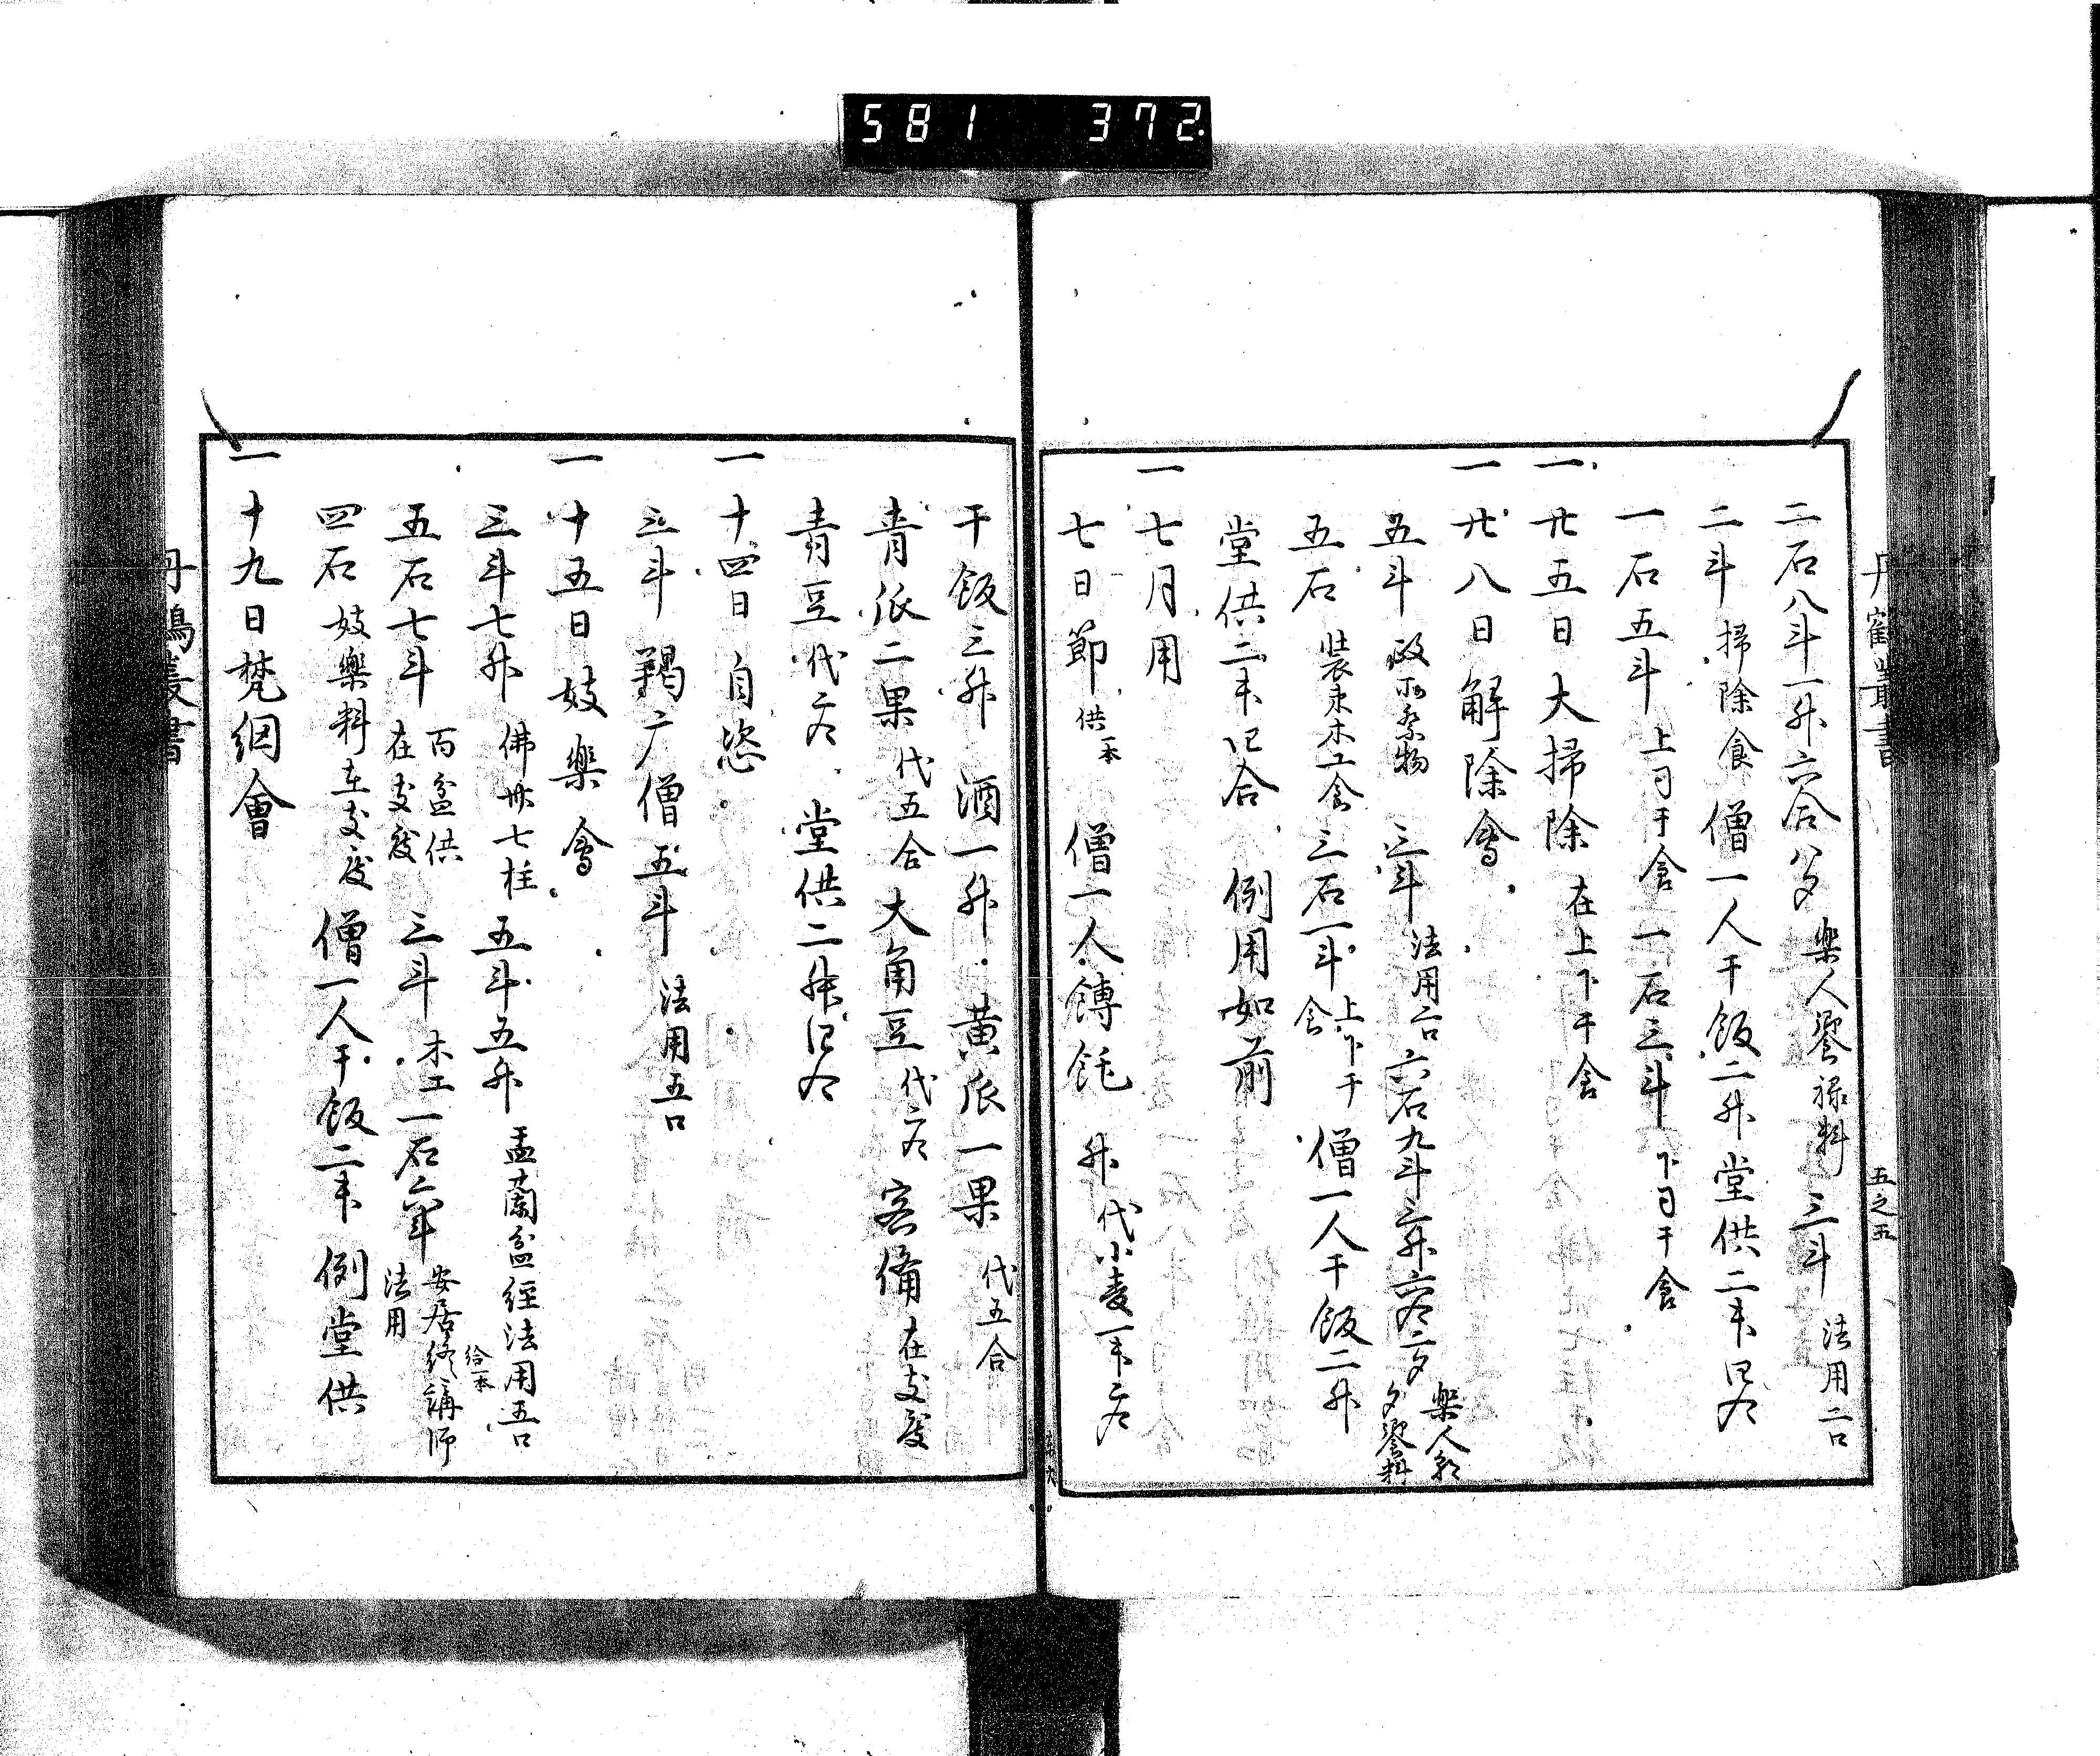 581 372
丹鶴叢書
五之五
二石八斗一升六合八夕 楽人饗禄料 三斗 法用二口
二斗 掃除食 僧一人干飯二升堂供二升
一石五斗 上旬干食 一石三斗 下旬干食
一廿五日大掃除 在上下干食
一廿八日解除會
五斗 政所祭物 三斗 法用 六石九斗三升 楽人 夕饗料
五石 装束木工食 三石一斗 上下干食 僧一人干飯二升
堂供二升 合 例用如前
一七月用
七日節 供本 僧一人餺飥 升代小麦一升
干飯三升 酒一升 黄瓜一果 代五合
青瓜二果 代五合 大角豆 代 客備 在支度
青豆 代 堂供二升
一十四日自恣
三斗 羯广僧 五斗 法用五口
一十五日妓楽會
三斗七升 佛卅七柱 五斗五升 盂蘭盆經法用五口
五石七斗 百盆供 在支度 三斗 木工 一石六斗 安居終講師 法用 給本
四石 妓樂料在支度 僧一人干飯二升 例堂供
一十九日梵網會
丹鶴叢書